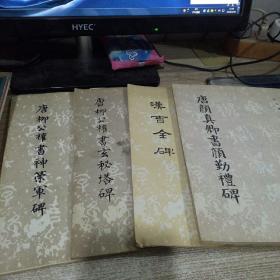 HYEC
唐柳公權書神策軍碑
唐柳公權書玄秘塔碑
漢西全碑
唐顏真卿書顏勤禮碑